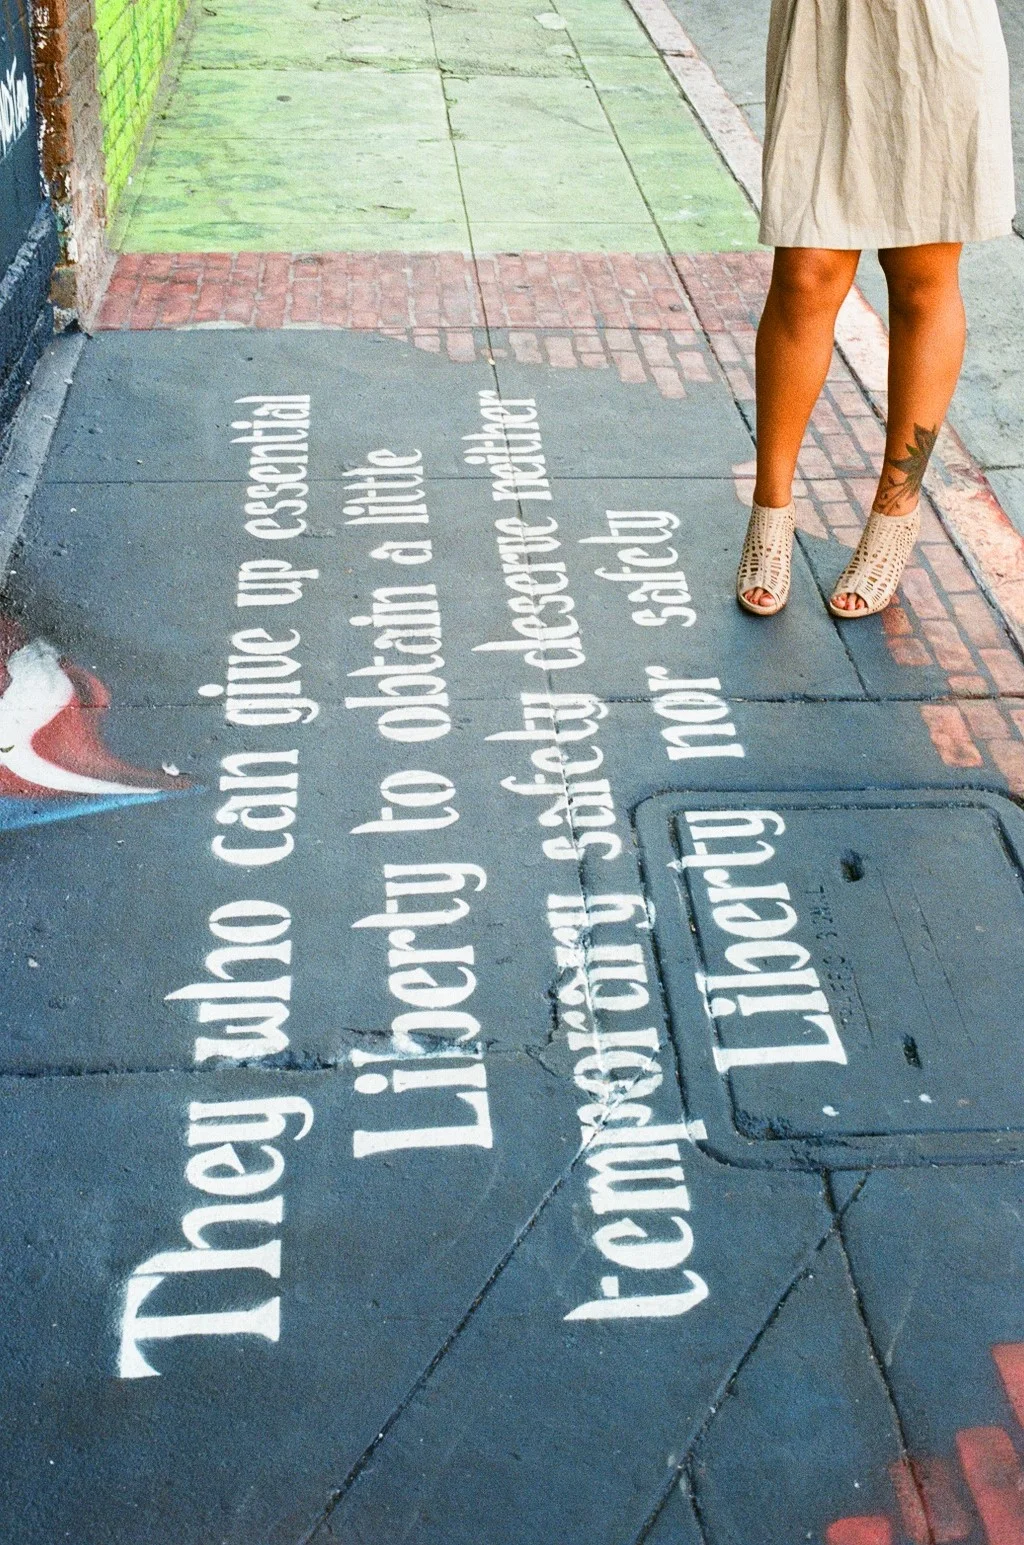 They who can give up essential
Liberty to obtain a little
temporary safety deserve neither
Liberty nor safety